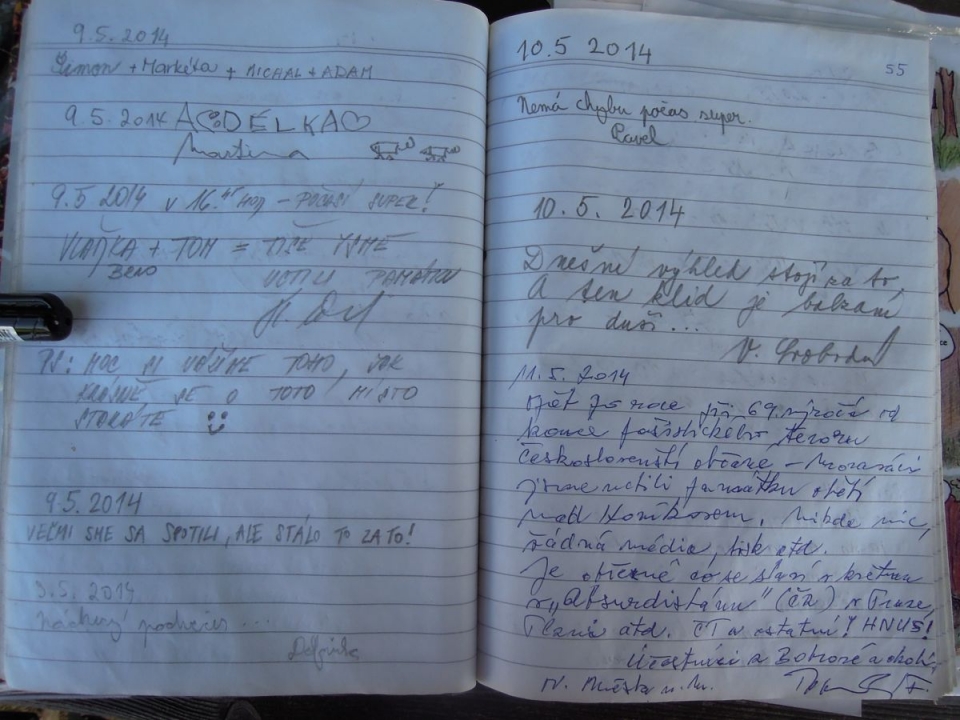 9.5.2014
Šimon + Markéta + MICHAL + ADAM
9 5.2014 ADÉLKA
Martina
9.5 2014 v 16.45 HOD – POČASÍ SUPER!
VLAĎKA + TOM = TIŠE JSME
UCTILI PAMÁTKU
PS: MOC SI VÁŽÍME TOHO, JAK
KRÁSNĚ SE O TOTO MÍSTO
STARÁTE
9.5.2014
VEĽMI SME SA SPOTILI, ALE STÁLO TO ZA TO!
9.5.2014
nádherný podvečer ...
55
10.5 2014
Nemá chybu počas super.
Pavel
10.5. 2014
Dnešní výhled stojí za to,
A ten klid je balzám
pro duši...
V. Svoboda
11.5. 2014
opět po roce při 69. výročí od
konce fašistického teroru
českoslovenští občané –
jsme uctili památku obětí
nad . Nikde nic,
žádná média, tisk atd.
Je otřesné co se slaví v květnu
v „Absurdistánu" (ČR) v Praze,
Plzni atd. ČT a ostatní! HNUS!
Účastníci z a okolí,
N. Města n. M.